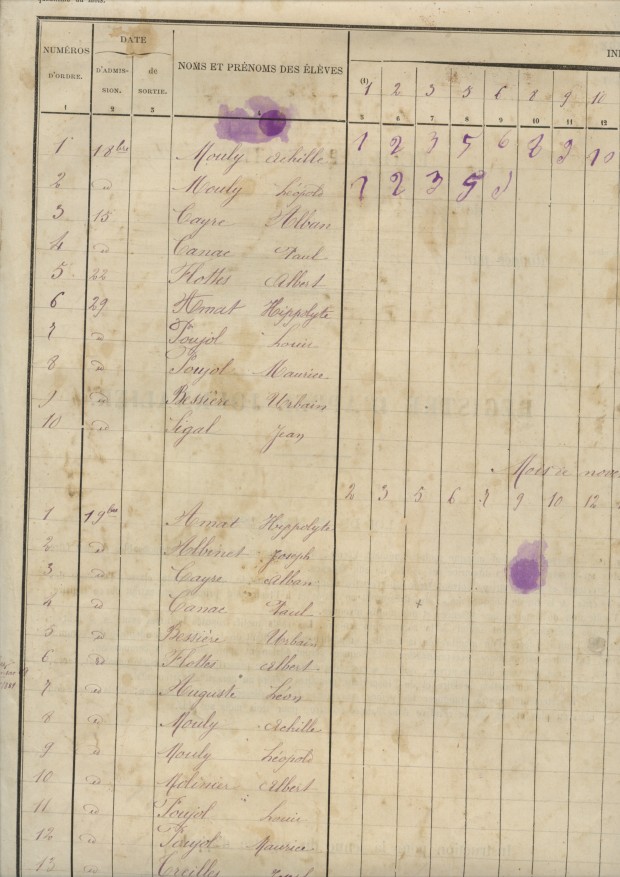 NUMÉROS D'ORDRE. DATE NOMS ET PRÉNOMS DES ÉLÈVES
D'ADMISSION. de SORTIE. (1) 1 2 3 5 6 8 9 10
1 2 3 4 5 6 7 8 9 10 11 12
1 1 8bre Mouly Achille 1 2 3 5 6 8 9 10
2 d Mouly Léopold 1 2 3 5
3 15 Cayre Alban
4 d Canac Paul
5 22 Flottes Albert
6 29 Amat Hippolyte
7 d Poujol Louis
8 d Poujol Maurice
9 d Bessière Urbain
10 d Sigal Jean
Mois de nove
2 3 5 6 7 9 10 12
1 1 9bre Amat Hippolyte
2 d Albinet Joseph
3 d Cayre Alban
4 d Canac Paul +
5 d Bessière Urbain
6 d Flottes Albert
7 d Auguste Léon
8 d Mouly Achille
9 d Mouly Léopold
10 d Molinier Albert
11 d Poujol Louis
12 d Poujol Maurice
13 Creilles